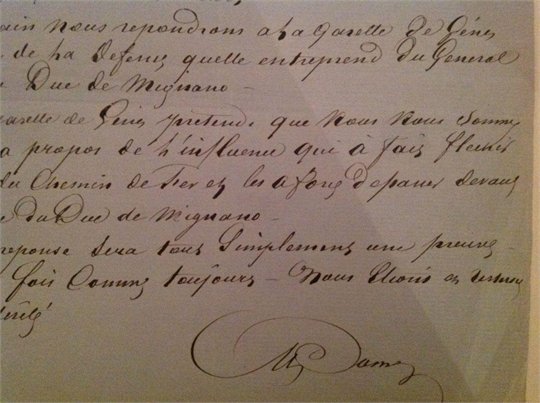 ain nous repondrons a La Gazette de Gênes
de La defense quelle entreprend du General
Duc de Mignano —
Gazette de Gênes pretend que Nous Nous Sommes
a propos de L'influence qui à fait
du Chemin de Fer et les a forcé
du Duc de Mignano —
reponse Sera tout Simplement une preuve —
fois Comme toujours — Nous Etions
vérité